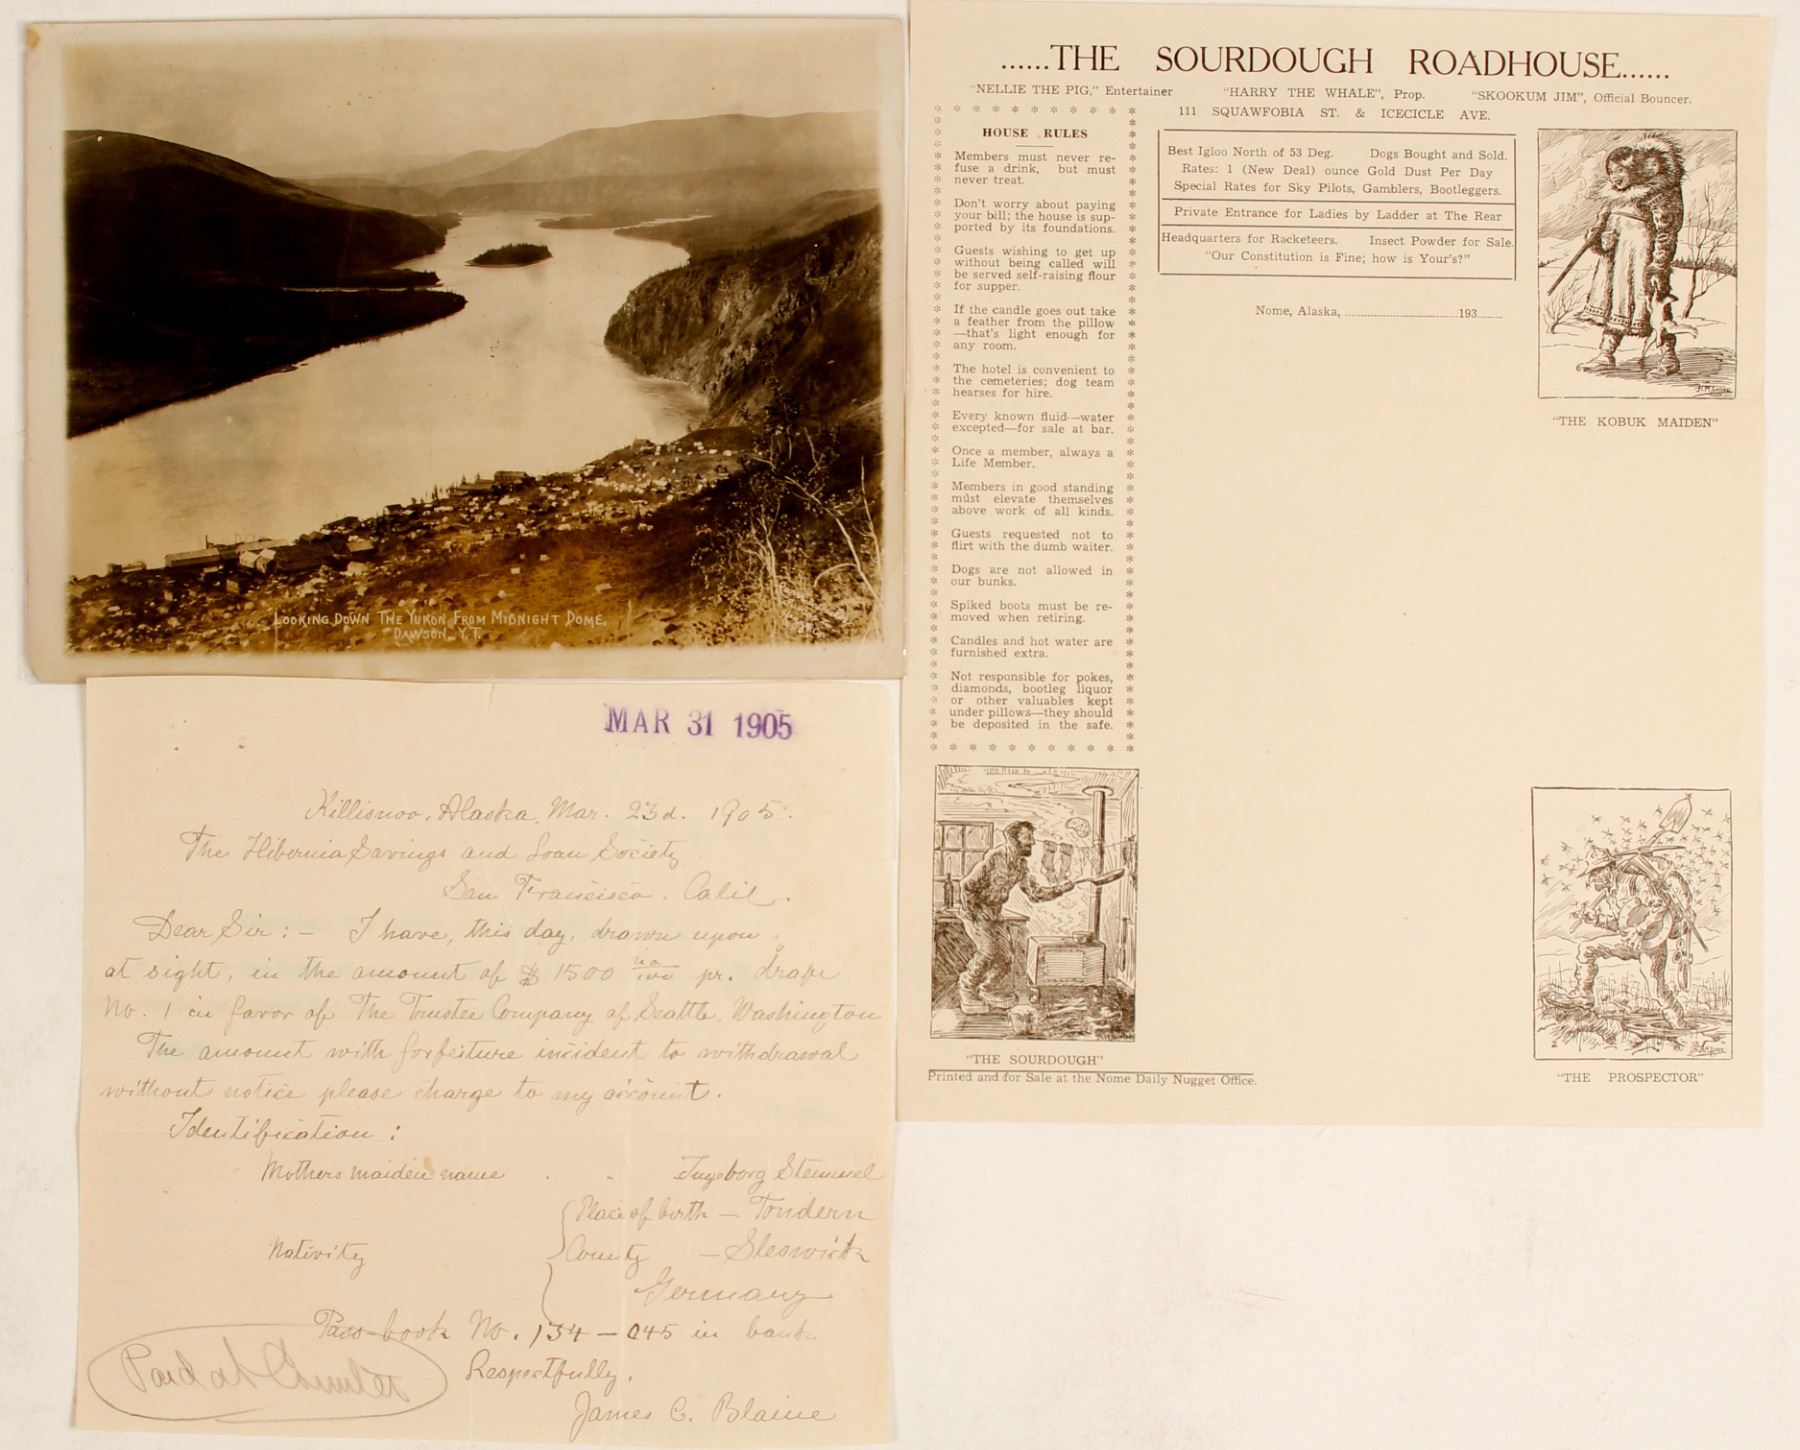 LOOKING DOWN THE YUKON FROM MIDNIGHT DOME.
DAWSON, Y.T.
......THE SOURDOUGH ROADHOUSE......
"NELLIE THE PIG," Entertainer "HARRY THE WHALE", Prop. "SKOOKUM JIM", Official Bouncer.
111 SQUAWFOBIA ST. & ICECICLE AVE.
HOUSE RULES
Members must never re-
fuse a drink, but must
never treat.
Don't worry about paying
your bill; the house is sup-
ported by its foundations.
Guests wishing to get up
without being called will
be served self-raising flour
for supper.
If the candle goes out take
a feather from the pillow
—that's light enough for
any room.
The hotel is convenient to
the cemeteries; dog team
hearses for hire.
Every known fluid—water
excepted—for sale at bar.
Once a member, always a
Life Member.
Members in good standing
must elevate themselves
above work of all kinds.
Guests requested not to
flirt with the dumb waiter.
Dogs are not allowed in
our bunks.
Spiked boots must be re-
moved when retiring.
Candles and hot water are
furnished extra.
Not responsible for pokes,
diamonds, bootleg liquor
or other valuables kept
under pillows—they should
be deposited in the safe.
Best Igloo North of 53 Deg. Dogs Bought and Sold.
Rates: 1 (New Deal) ounce Gold Dust Per Day
Special Rates for Sky Pilots, Gamblers, Bootleggers.
Private Entrance for Ladies by Ladder at The Rear
Headquarters for Racketeers. Insect Powder for Sale.
"Our Constitution is Fine; how is Your's?"
Nome, Alaska, ..............................193......
"THE KOBUK MAIDEN"
"THE SOURDOUGH"
"THE PROSPECTOR"
Printed and for Sale at the Nome Daily Nugget Office.
MAR 31 1905
Killisnoo, Alaska, Mar. 23d. 1905.
The Hibernia Savings and Loan Society
San Francisco. Calif.
Dear Sir: - I have, this day, drawn upon
at sight, in the amount of $ 1500 no/100 pr. draft
No. 1 in favor of The Trustee Company of Seattle, Washington
The amount with forfeiture incident to withdrawal
without notice please charge to my account.
Identification:
Mothers maiden name . . Ingeborg Stemmel
Place of birth — Tondern
Nativity County — Sleswick
Germany
Pass-book No. 134-045 in bank
Respectfully.
James C. Blaine
Paid at